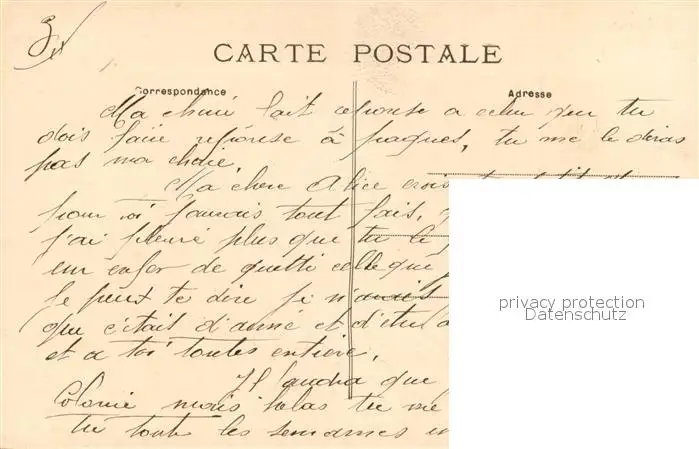 CARTE POSTALE
Correspondence
Adresse
Ma chérie fait réponse a celui que tu
dois faire réponse à pasques, tu me le diras
pas ma chère.
Ma chere Alice crois
pour toi jamais tout fais,
j'ai pleuré plus que tu
un enfer de quitté celle que
Je peux te dire je n'avais
que c'était d'aimé et d'être
et a toi toutes entière.
Il faudra que
Colonie mais helas tu me
tu toute les semaines
privacy protection
Datenschutz